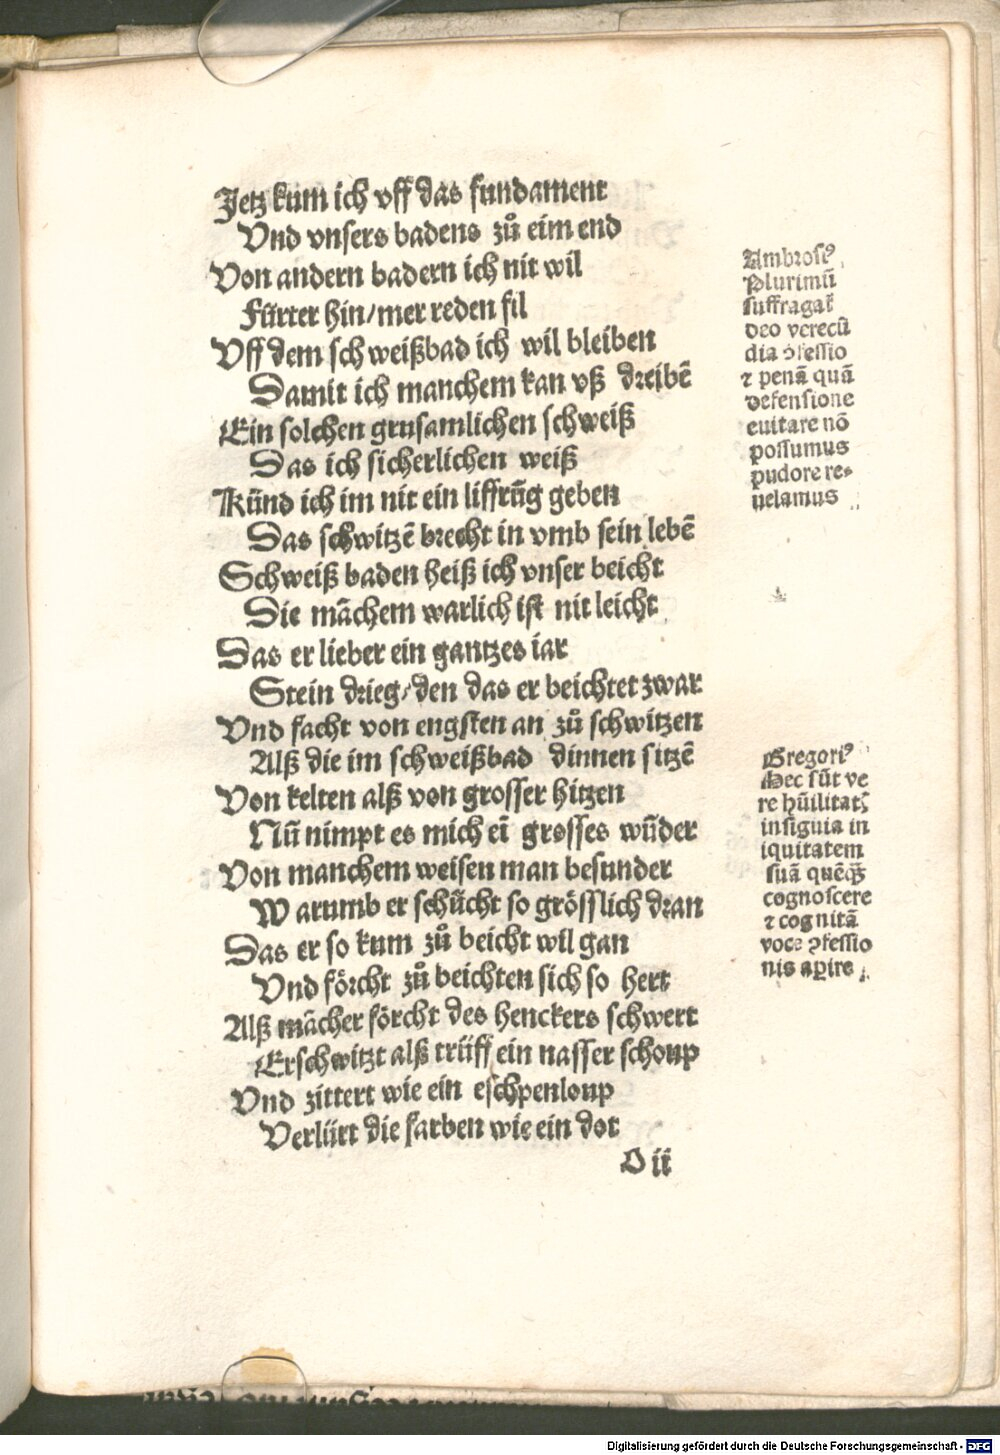 Jetz kum ich vff das fundament
Vnd vnsers badens zů eim end
Von andern badern ich nit wil
Fürter hin/mer reden fil
Vff dem schweißbad ich wil bleiben
Damit ich manchem kan vß dreibē
Ein solchen grusamlichen schweiß
Das ich sicherlichen weiß
Künd ich im nit ein liffrūg geben
Das schwitzē brecht in vmb sein lebē
Schweiß baden heiß ich vnser beicht
Die māchem warlich ist nit leicht
Das er lieber ein gantzes iar
Stein drieg/den das er beichtet zwar
Vnd facht von engsten an zů schwitzen
Alß die im schweißbad dinnen sitzē
Von kelten alß von grosser hitzen
Nū nimpt es mich eī grosses wūder
Von manchem weisen man besunder
Warumb er schücht so grösslich dran
Das er so kum zů beicht wil gan
Vnd förcht zů beichten sich so hert
Alß mācher förcht des henckers schwert
Erschwitzt alß trüff ein nasser schoup
Vnd zittert wie ein eschpenloup
Verlürt die farben wie ein dot
O ii
Ambrosiꝰ
Plurimū
suffragat̄
deo verecū
dia ꝯfessio
⁊ penā quā
defensione
euitare nō
possumus
pudore re-
uelamus
Gregoriꝰ
Hec sūt ve
re hūilitatꝭ
insignia in
iquitatem
suā quēqꝫ
cognoscere
⁊ cognitā
voce ꝯfessio
nis aꝑire
Digitalisierung gefördert durch die Deutsche Forschungsgemeinschaft - DFG